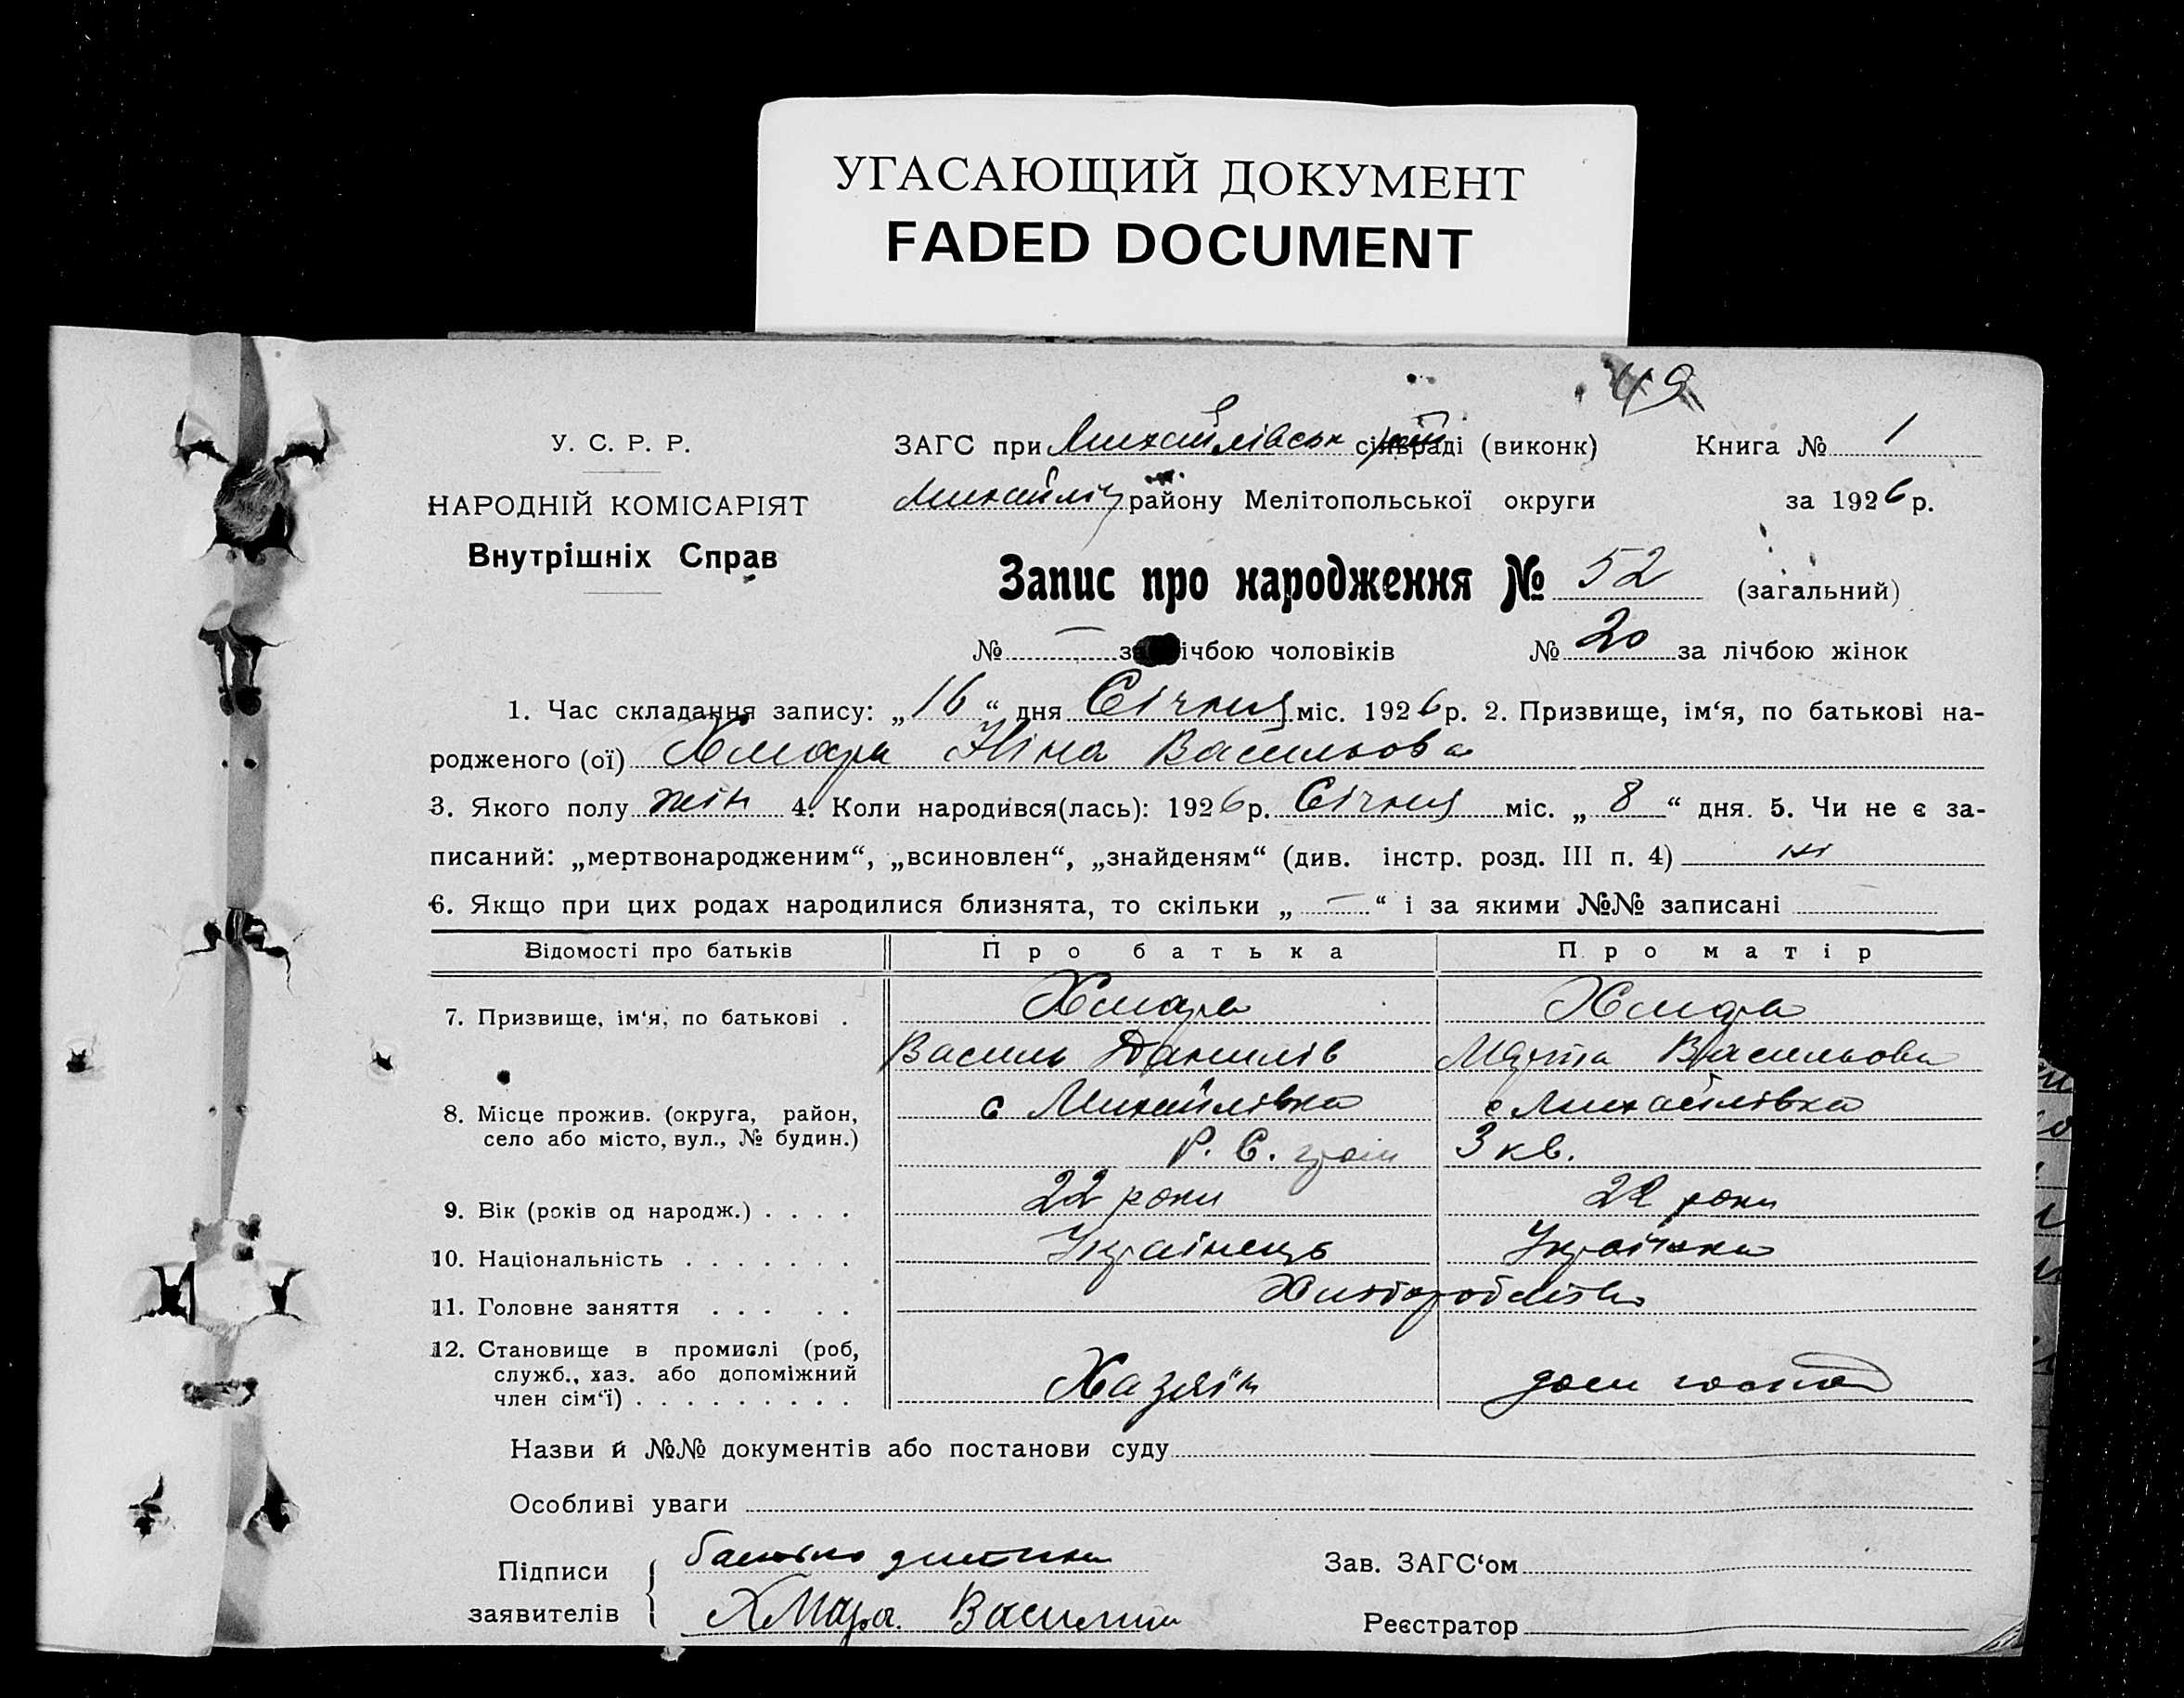 УГАСАЮЩИЙ ДОКУМЕНТ
FADED DOCUMENT
49
У. С. Р. Р.
ЗАГС при Михайлівськ сільраді (виконк)
Книга № 1
НАРОДНІЙ КОМІСАРІЯТ
Внутрішніх Справ
Михайлів району Мелітопольської округи
за 1926 р.
Запис про народження № 52 (загальний)
№ — за лічбою чоловіків № 20 за лічбою жінок
1. Час складання запису: „16“ дня Січня міс. 1926 р. 2. Призвище, ім‘я, по батькові на-
родженого (ої) Хмара Ніна Васильова
3. Якого полу жін 4. Коли народився(лась): 1926 р. Січня міс. „8“ дня. 5. Чи не є за-
писаний: „мертвонародженим“, „всиновлен“, „знайденям“ (див. інстр. розд. III п. 4) ні
6. Якщо при цих родах народилися близнята, то скільки „—“ і за якими №№ записані
Відомості про батьків Про батька Про матір
7. Призвище, ім‘я, по батькові . Хмара Хмара
Василь Данилів Марта Васильова
8. Місце прожив. (округа, район, с Михайлівка с Михайлівка
село або місто, вул., № будин.) Р. С. 3 кв.
9. Вік (років од народж.) . . . . 22 роки 22 роки
10. Національність . . . . . . . Українець Українка
11. Головне заняття . . . . . Хліборобство
12. Становище в промислі (роб,
служб., хаз. або допоміжний
член сім‘ї) . . . . . . . . . Хазяїн дом господ
Назви й №№ документів або постанови суду
Особливі уваги
Підписи батько дитини
Зав. ЗАГС‘ом
заявителів Хмара Василь
Реєстратор